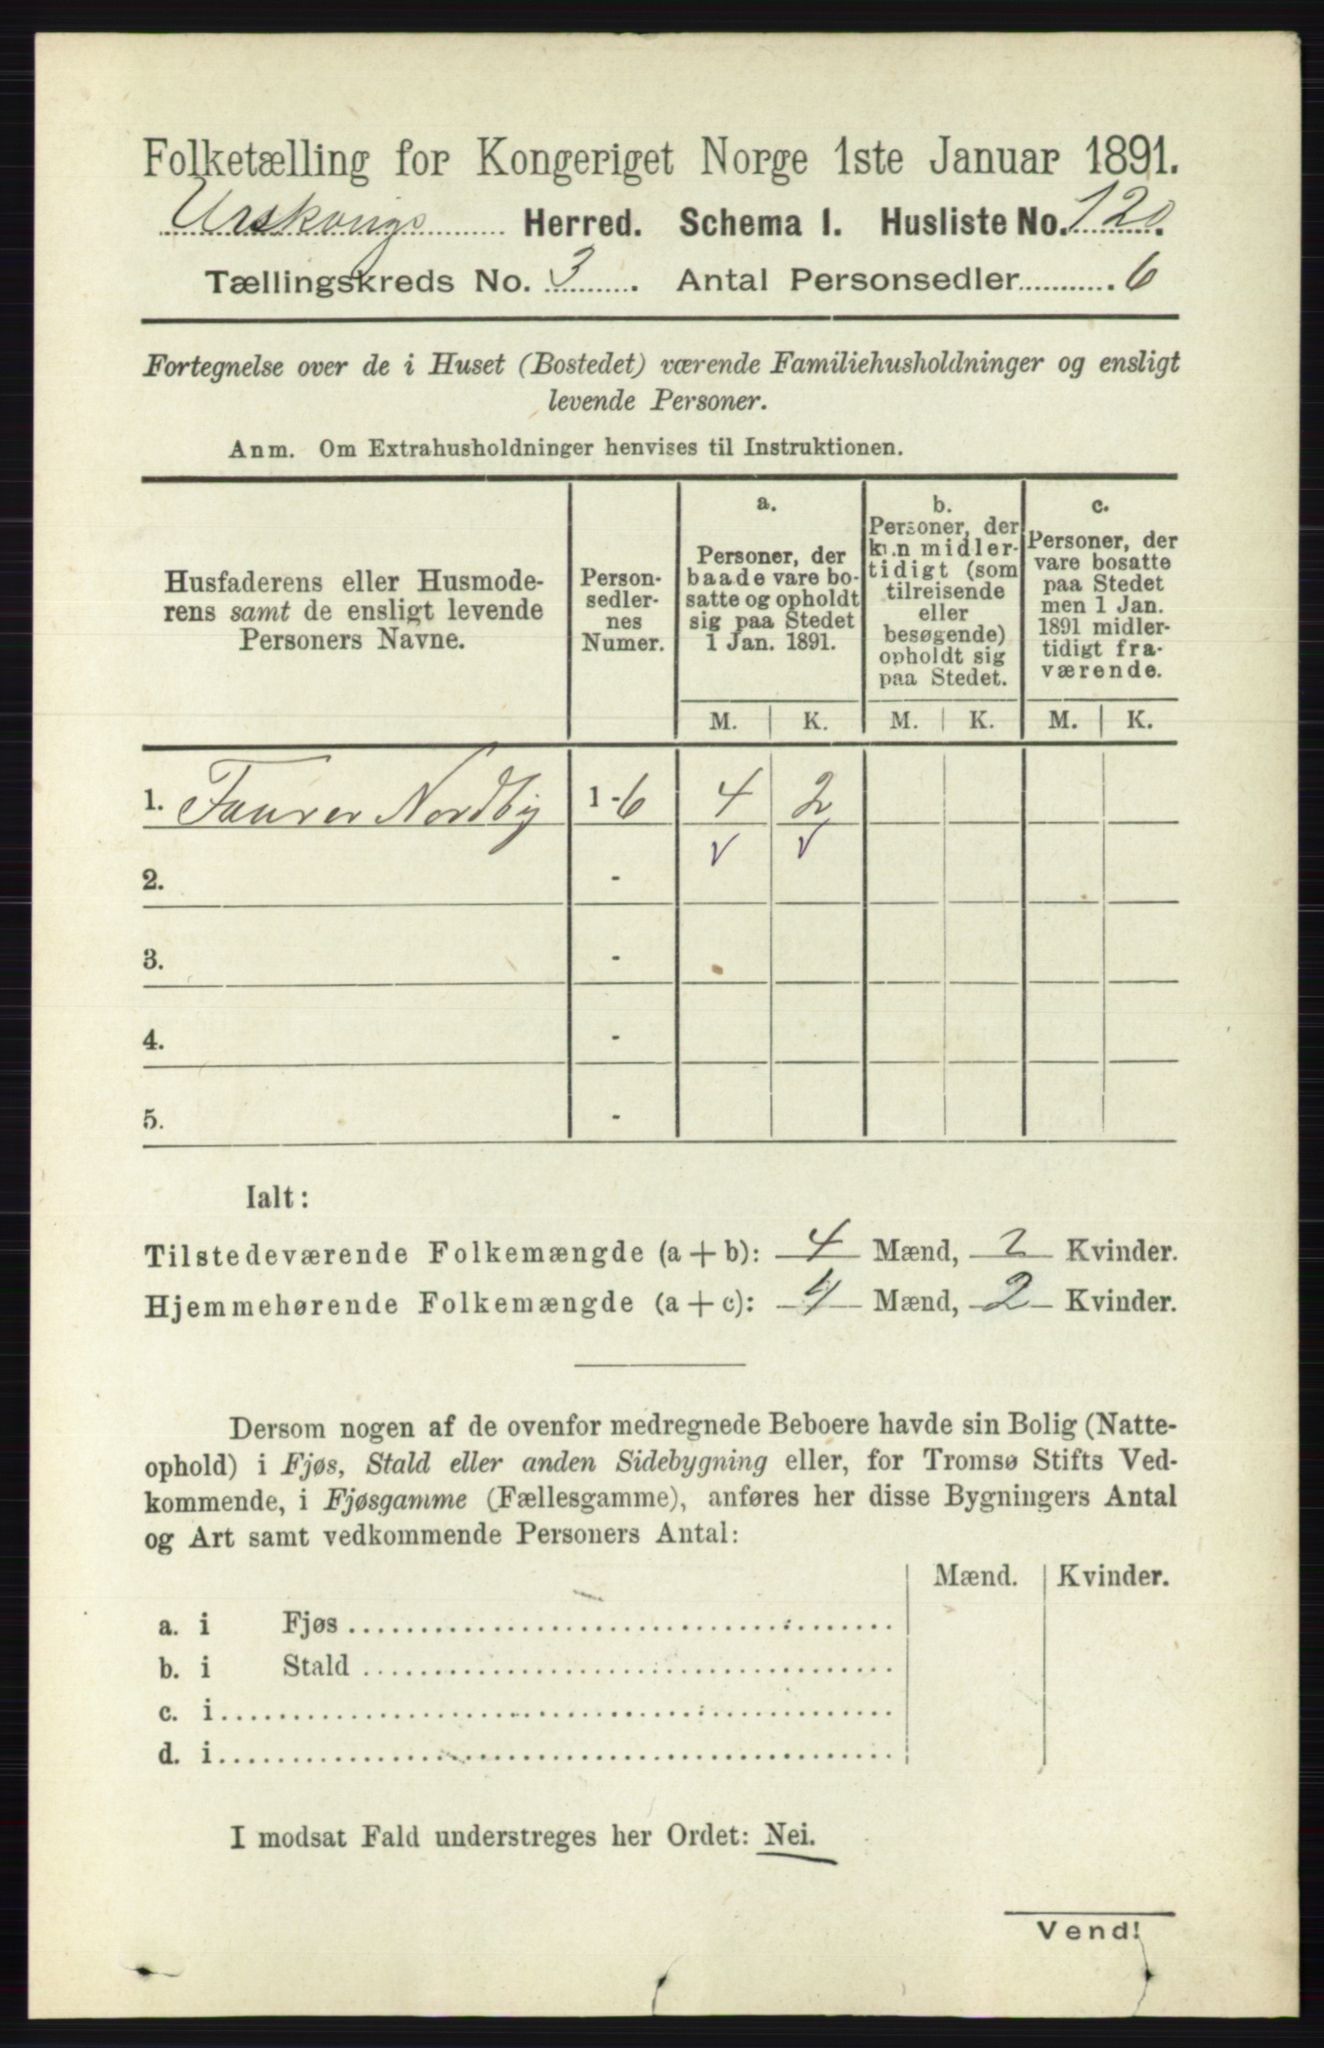 Folketælling for Kongeriget Norge 1ste Januar 1891.
Urskougs Herred. Schema I. Husliste No. 120.
Tællingskreds No. 3. Antal Personsedler 6
Fortegnelse over de i Huset (Bostedet) værende Familiehusholdninger og ensligt
levende Personer.
Anm. Om Extrahusholdninger henvises til Instruktionen.
Husfaderens eller Husmode-
rens samt de ensligt levende
Personers Navne.
Person-
sedler-
nes
Numer.
a.
Personer, der
baade vare bo-
satte og opholdt
sig paa Stedet
1 Jan. 1891.
b.
Personer, der
kun midler-
tidigt (som
tilreisende
eller
besøgende)
opholdt sig
paa Stedet.
c.
Personer, der
vare bosatte
paa Stedet
men 1 Jan.
1891 midler-
tidigt fra-
værende.
M. K. M. K. M. K.
1. Faurer Nordby 1 - 6 4 2
v v
2. -
3. -
4. -
5. -
Ialt:
Tilstedeværende Folkemængde (a + b): 4 Mænd, 2 Kvinder.
Hjemmehørende Folkemængde (a + c): 4 Mænd, 2 Kvinder.
Dersom nogen af de ovenfor medregnede Beboere havde sin Bolig (Natte-
ophold) i Fjøs, Stald eller anden Sidebygning eller, for Tromsø Stifts Ved-
kommende, i Fjøsgamme (Fællesgamme), anføres her disse Bygningers Antal
og Art samt vedkommende Personers Antal:
Mænd. Kvinder.
a. i Fjøs
b. i Stald
c. i
d. i
I modsat Fald understreges her Ordet: Nei.
Vend!